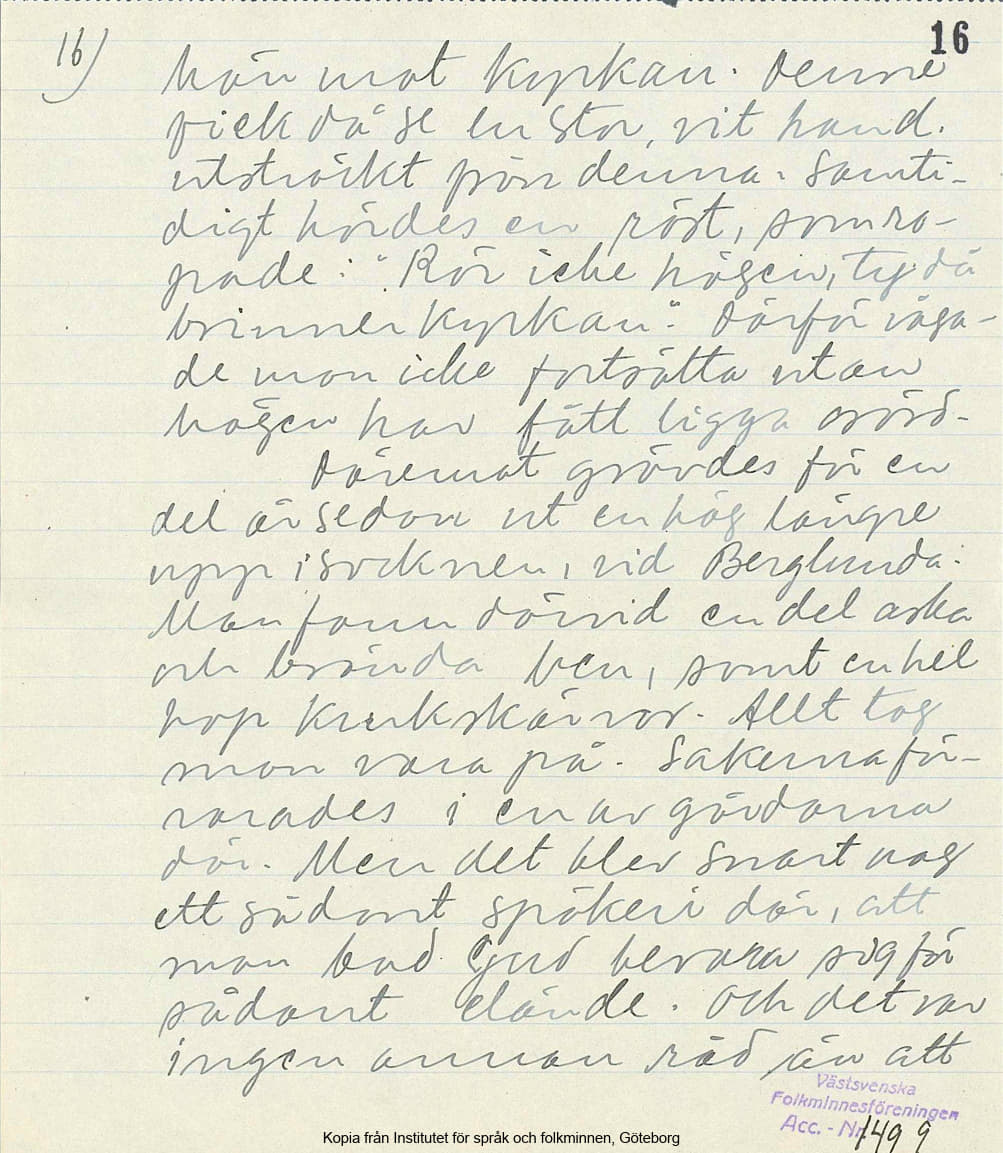 16)
16
hän mot kyrkan. Denne
fick då se en stor, vit hand.
utsträckt från denna. Samti-
digt hördes en röst, som ro-
pade: "Rör icke högen, ty då
brinner kyrkan". Därför våga-
de man icke fortsätta utan
högen har fått ligga orörd.
Däremot grävdes för en
del år sedan ut en hög längre
upp i socknen, vid Berglunda.
Man fann därvid en del aska
och brända ben, samt en hel
hop krukskärvor. Allt tog
man vara på. Sakerna för-
varades i en av gårdarna
där. Men det blev snart nog
ett sådant spökeri där, att
man bad Gud bevara sig för
sådant elände. Och det var
ingen annan råd än att
Västsvenska
Folkminnesföreningen
Acc. - Nr 1499
Kopia från Institutet för språk och folkminnen, Göteborg